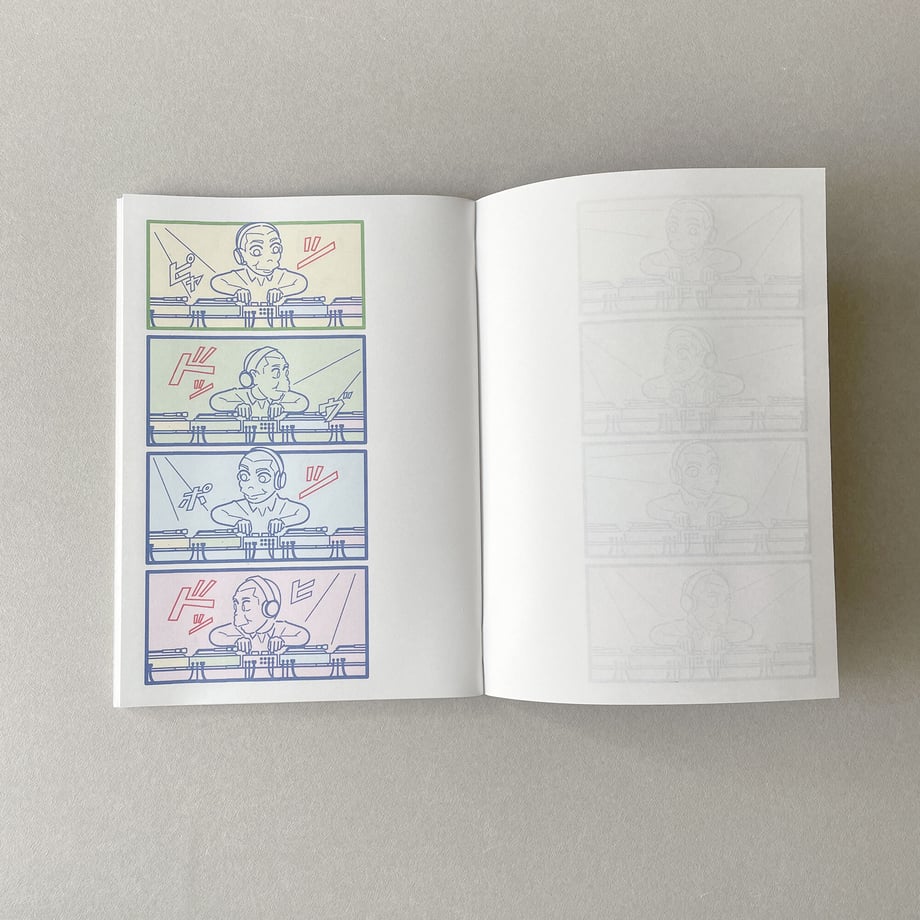 ピャ
ッ
ドッ
ヴ
ポ
ッ
ドッ
ヒ